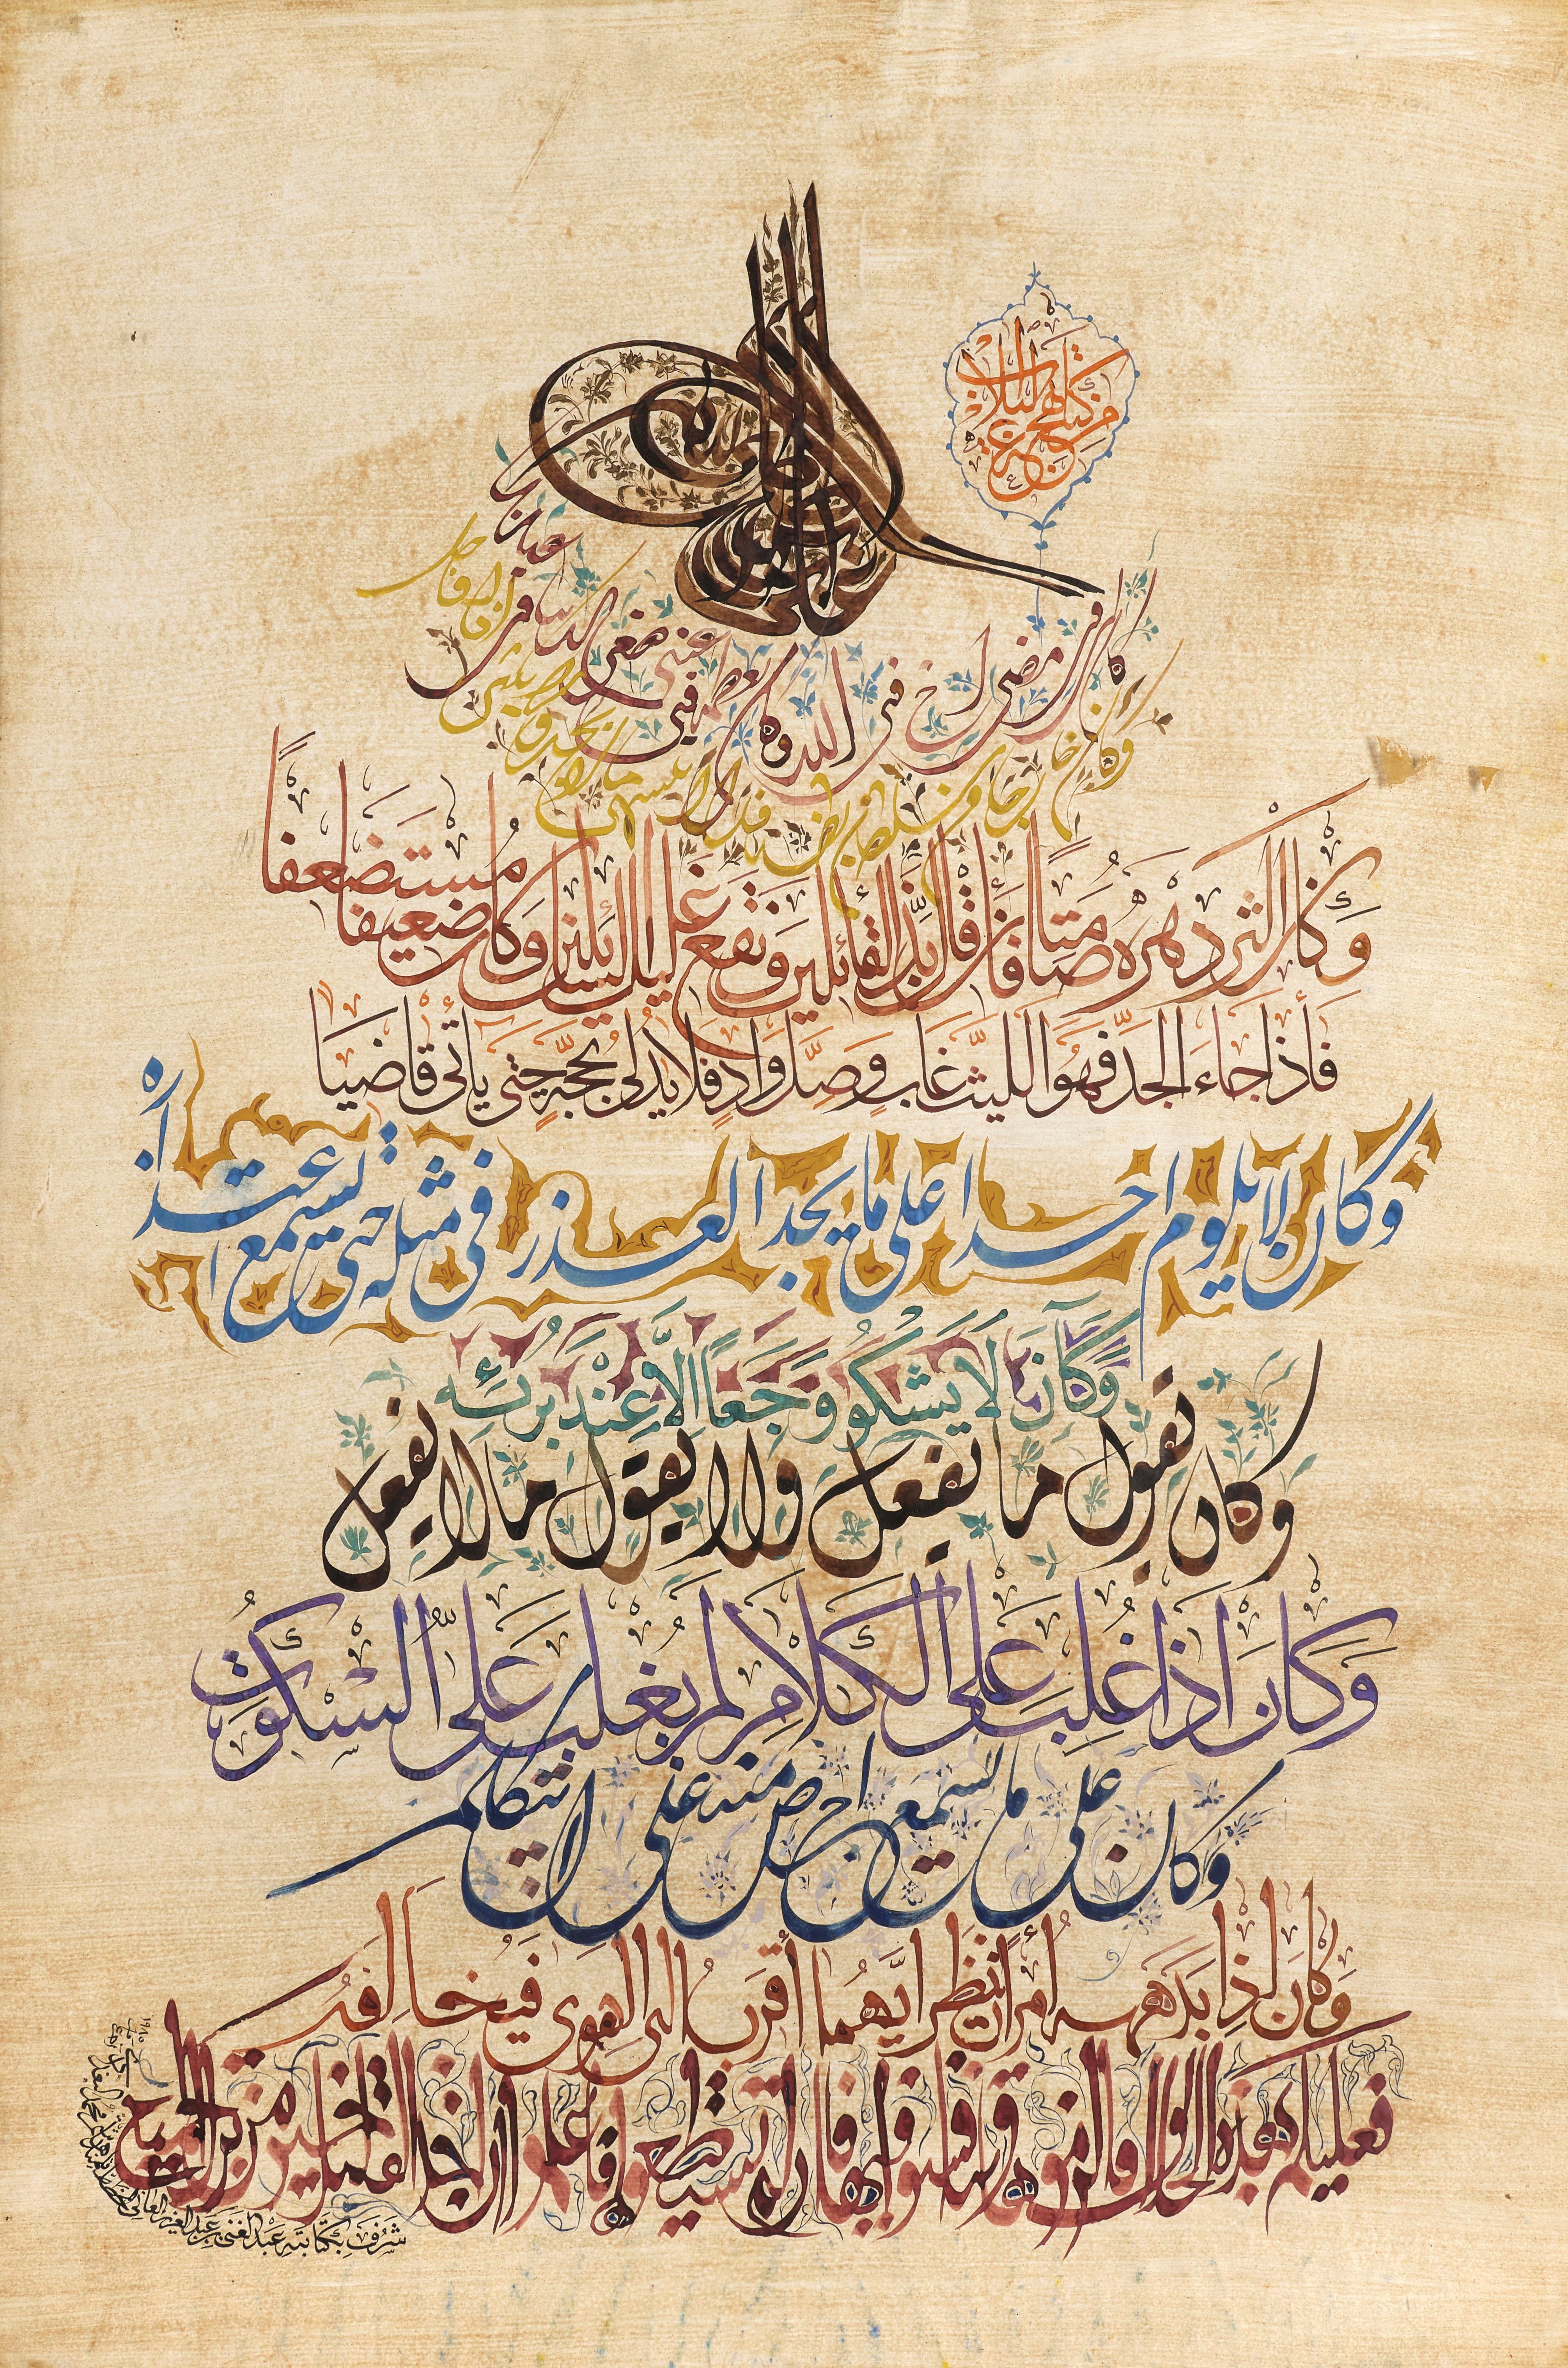 من كتاب نهج البلاغة
كان لي فيما مضى أخ في الله وكان يعظمه في عيني صغر الدنيا في عينه
وكان خارجا من سلطان بطنه فلا يشتهي ما لا يجد ولا يكثر إذا وجد
وكان اكثر دهره صامتا فأن قال بذ القائلين ونقع غليل السائلين وكان ضعيفا مستضعفا
فأذا جاء الجد فهو الليث غاب وصل واد فلا يدلي بحجة حتى يأتي قاضيا
وكان لا يلوم احدا على ما يجد العذر في مثله حتى يسمع اعتذاره
وكان لا يشكو وجعا الا عند برئه
وكان يقول ما يفعل ولا يقول ما لا يفعل
وكان اذا غلب على الكلام لم يغلب على السكوت
وكان على ما يسمع احرص منه على ان يتكلم
وكان اذا بدهه أمران نظر ايهما أقرب الى الهوى فيخالفه
فعليكم بهذه الخلائق فالزموها وتنافسوا فيها فان لم تستطيعوها فاعلموا ان اخذ القليل خير من ترك الجميع
شرف بكتابته عبد الغني بن عبد العزيز العاني